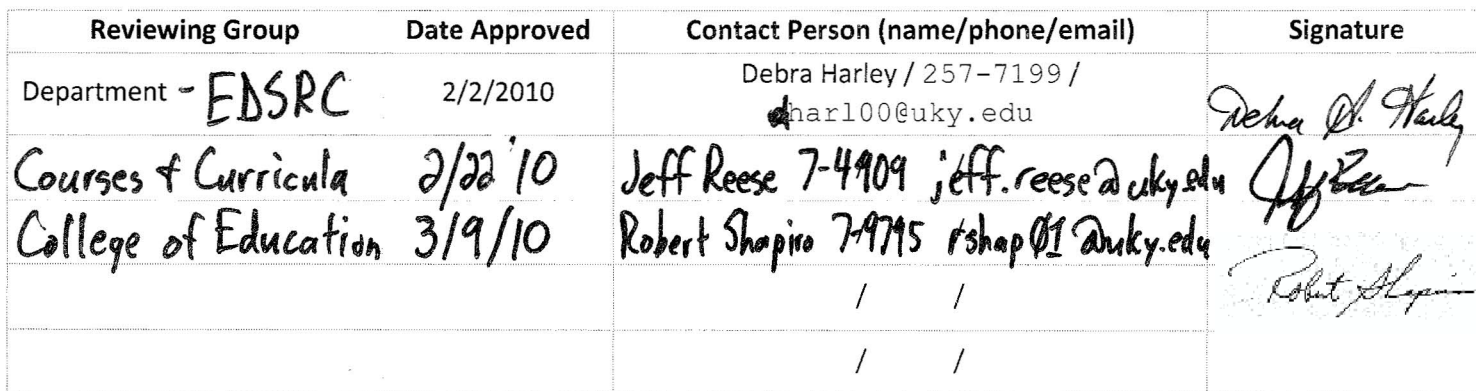 Reviewing Group Date Approved Contact Person (name/phone/email) Signature
Department - EDSRC 2/2/2010 Debra Harley / 257-7199 /
dharl00@uky.edu Debra A. Harley
Courses & Curricula 2/22 '10 Jeff Reese 7-4909 jeff.reese@uky.edu
College of Education 3/9/10 Robert Shapiro 7-9795 rshap01@uky.edu
Robert Shapiro
/ /
/ /